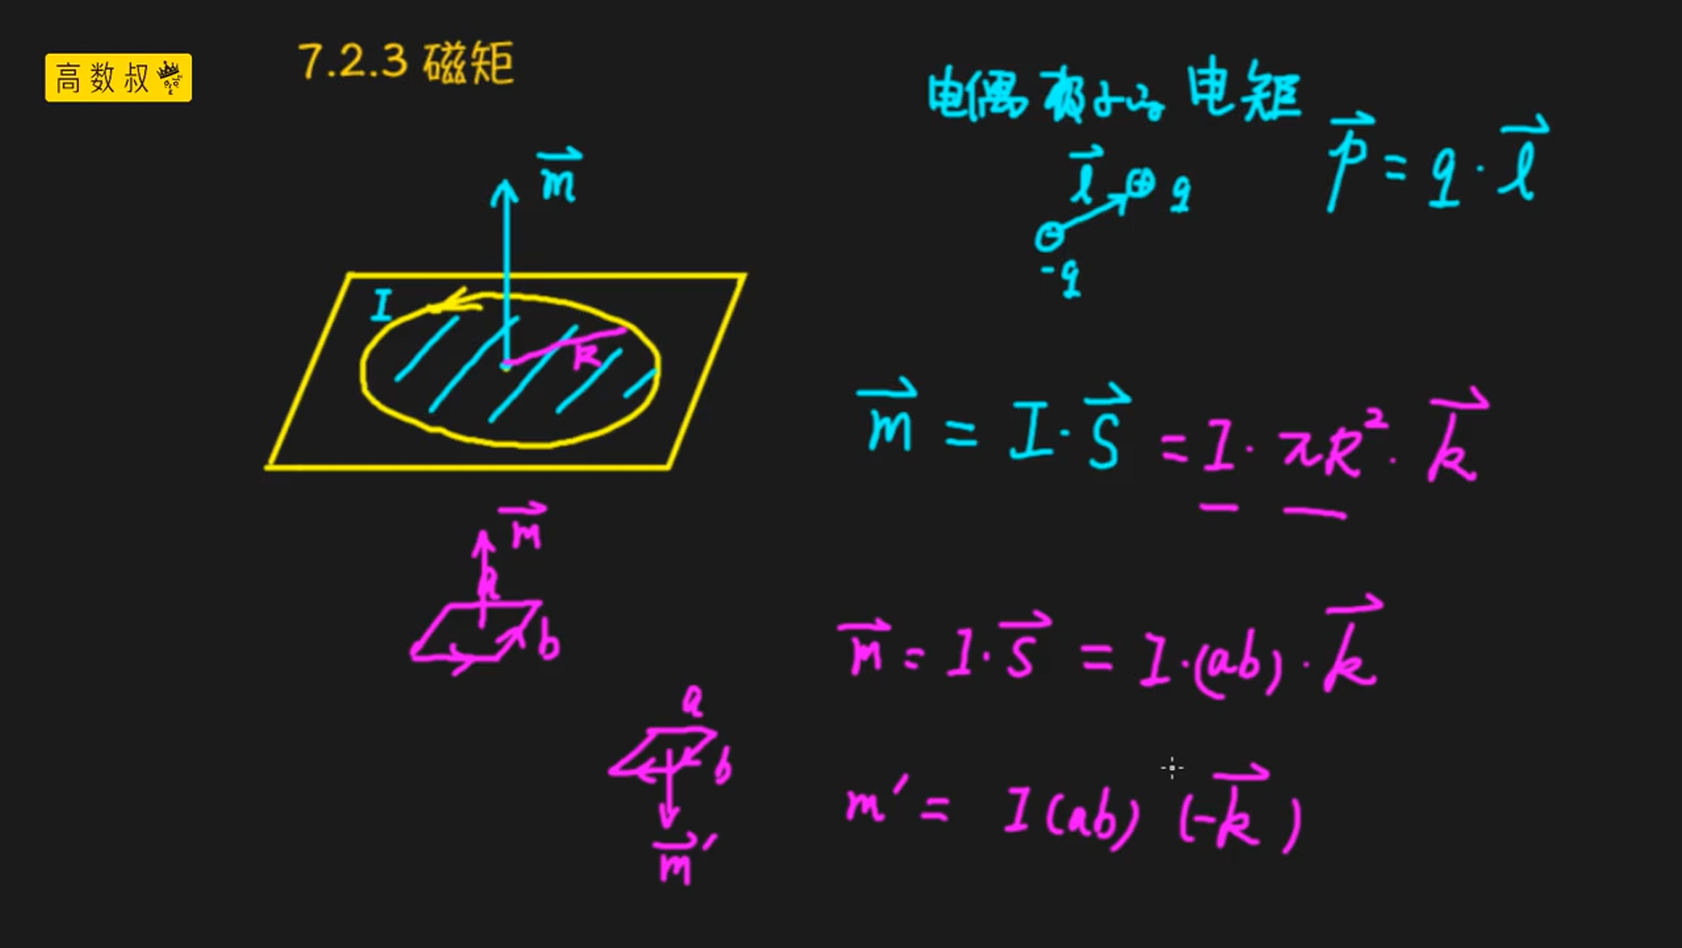 高数叔
7.2.3 磁矩
电偶极子的 电矩
p⃗ = q · l⃗
l⃗
q
-q
m⃗
I
R
m⃗ = I · S⃗ = I · πR² · k⃗
m⃗
a
b
m⃗ = I · S⃗ = I · (ab) · k⃗
a
b
m⃗′
m′ = I(ab) (-k⃗)